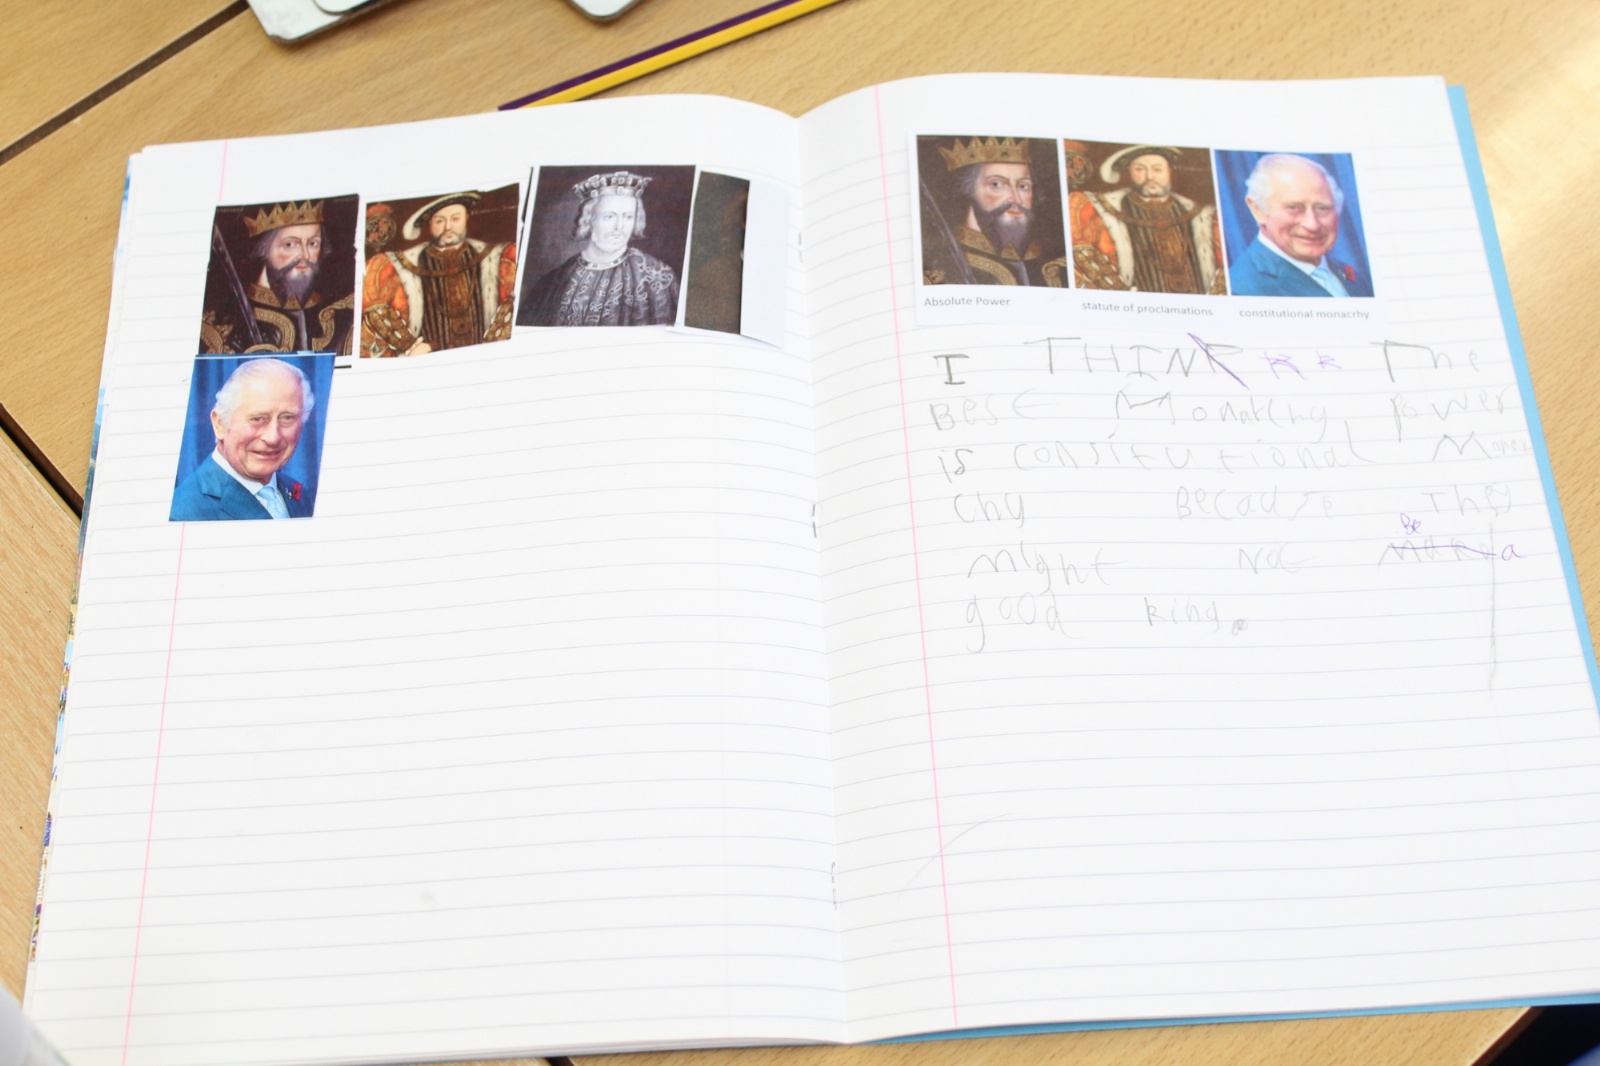 Absolute Power
statute of proclamations
constitutional monacrhy
I THINK K K The
Best Monarchy power
is consitutional Monar
chy Because They
might not Be a
good king.